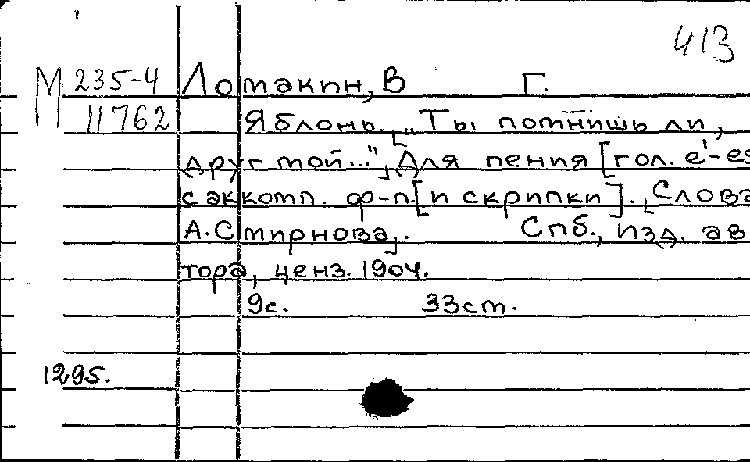 413
М 235-4 Ломакин, В Г.
11762 Яблонь. „Ты помнишь ли,
друг мой...", Для пения [гол. e'-es
с аккомп. ф-п. [и скрипки]. Слова
А. Смирнова. Спб., изд. ав
тора, ценз. 1904.
9с. 33ст.
1295.